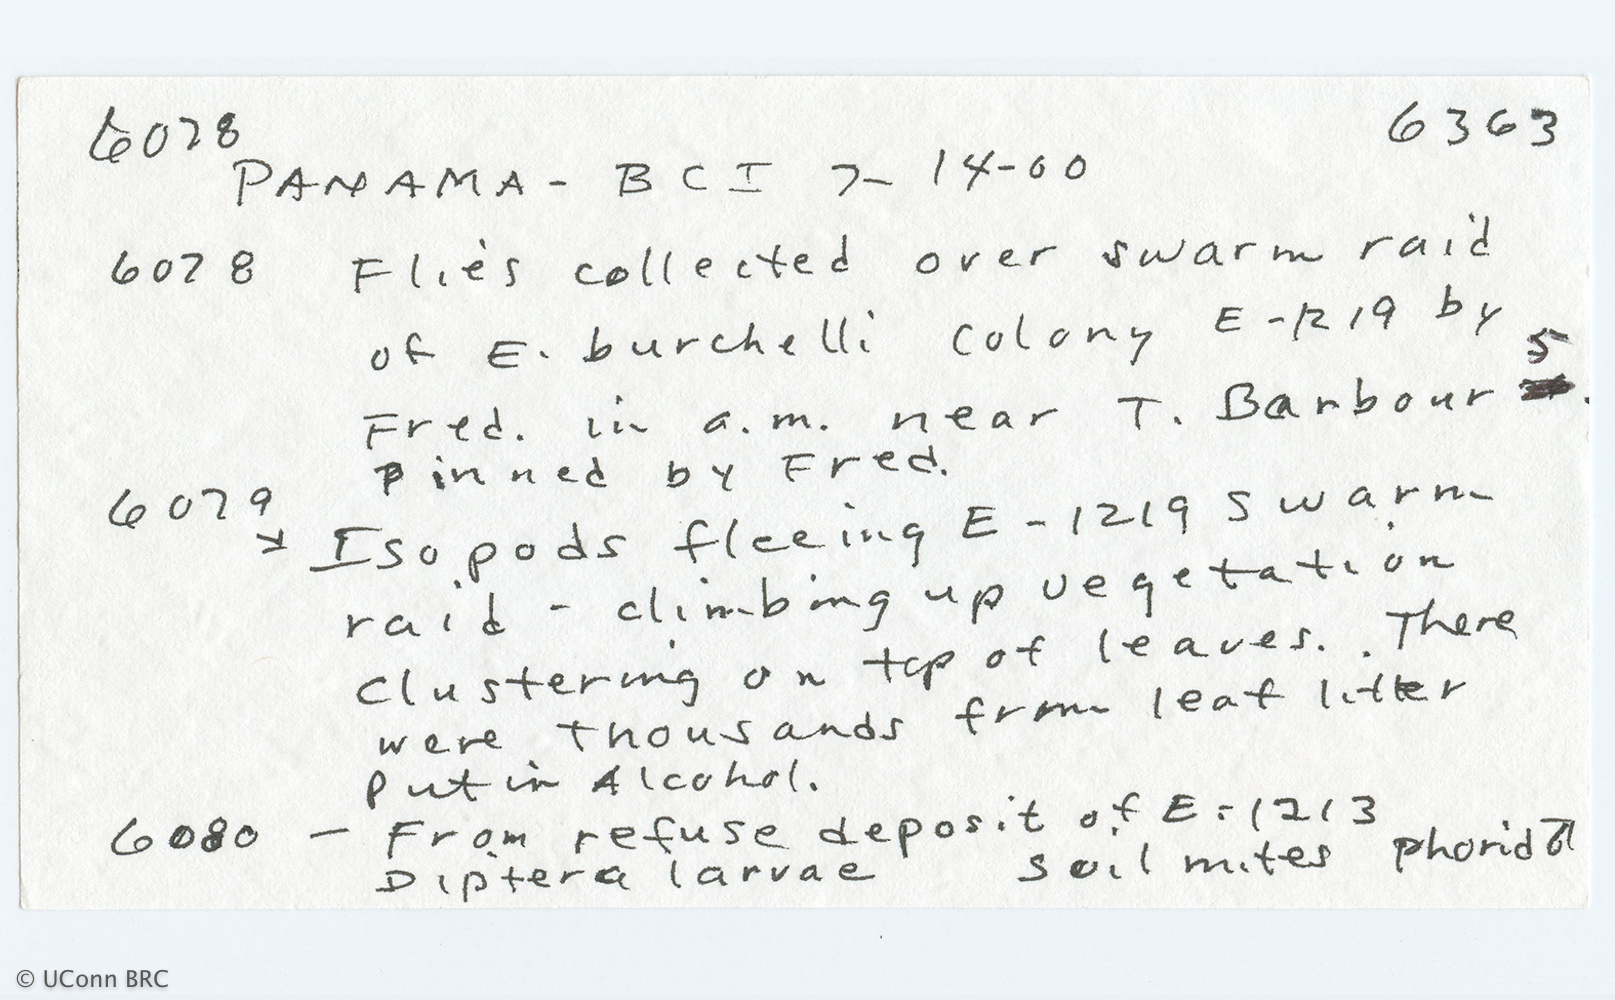 6078 6363
PANAMA - BCI 7-14-00
6078 Flies collected over swarm raid
of E. burchelli colony E-1219 by
Fred. in a.m. near T. Barbour 5.
Pinned by Fred.
6079
Isopods fleeing E-1219 swarm
raid - climbing up vegetation
clustering on top of leaves. There
were thousands from leaf litter
Put in Alcohol.
6080 - From refuse deposit of E-1213
Diptera larvae soil mites phorid ♂
© UConn BRC